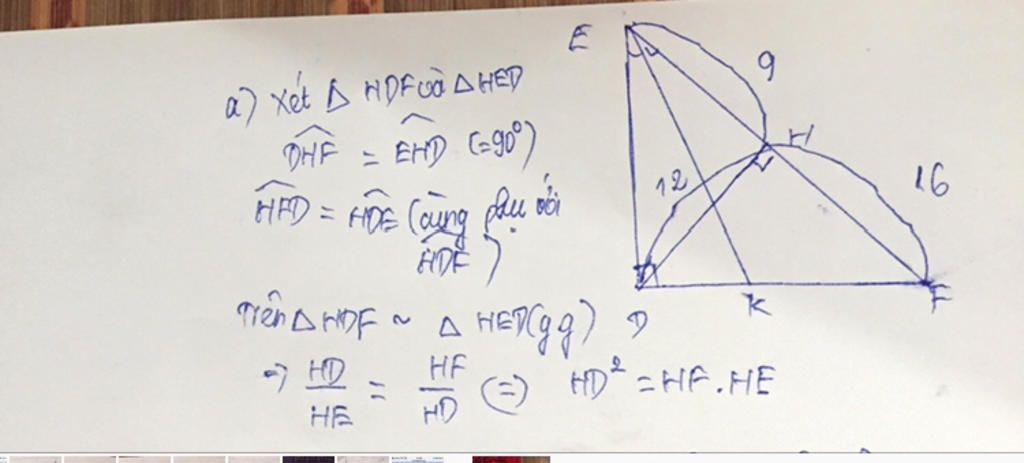 a) Xét △ HDF và △ HED
DHF = EHD (=90°)
HFD = HDE (cùng phụ với
HDF)
Trên △ HDF ~ △ HED (gg)
=> HD/HE = HF/HD (=) HD² = HF.HE
E
9
H
12
16
D
K
F